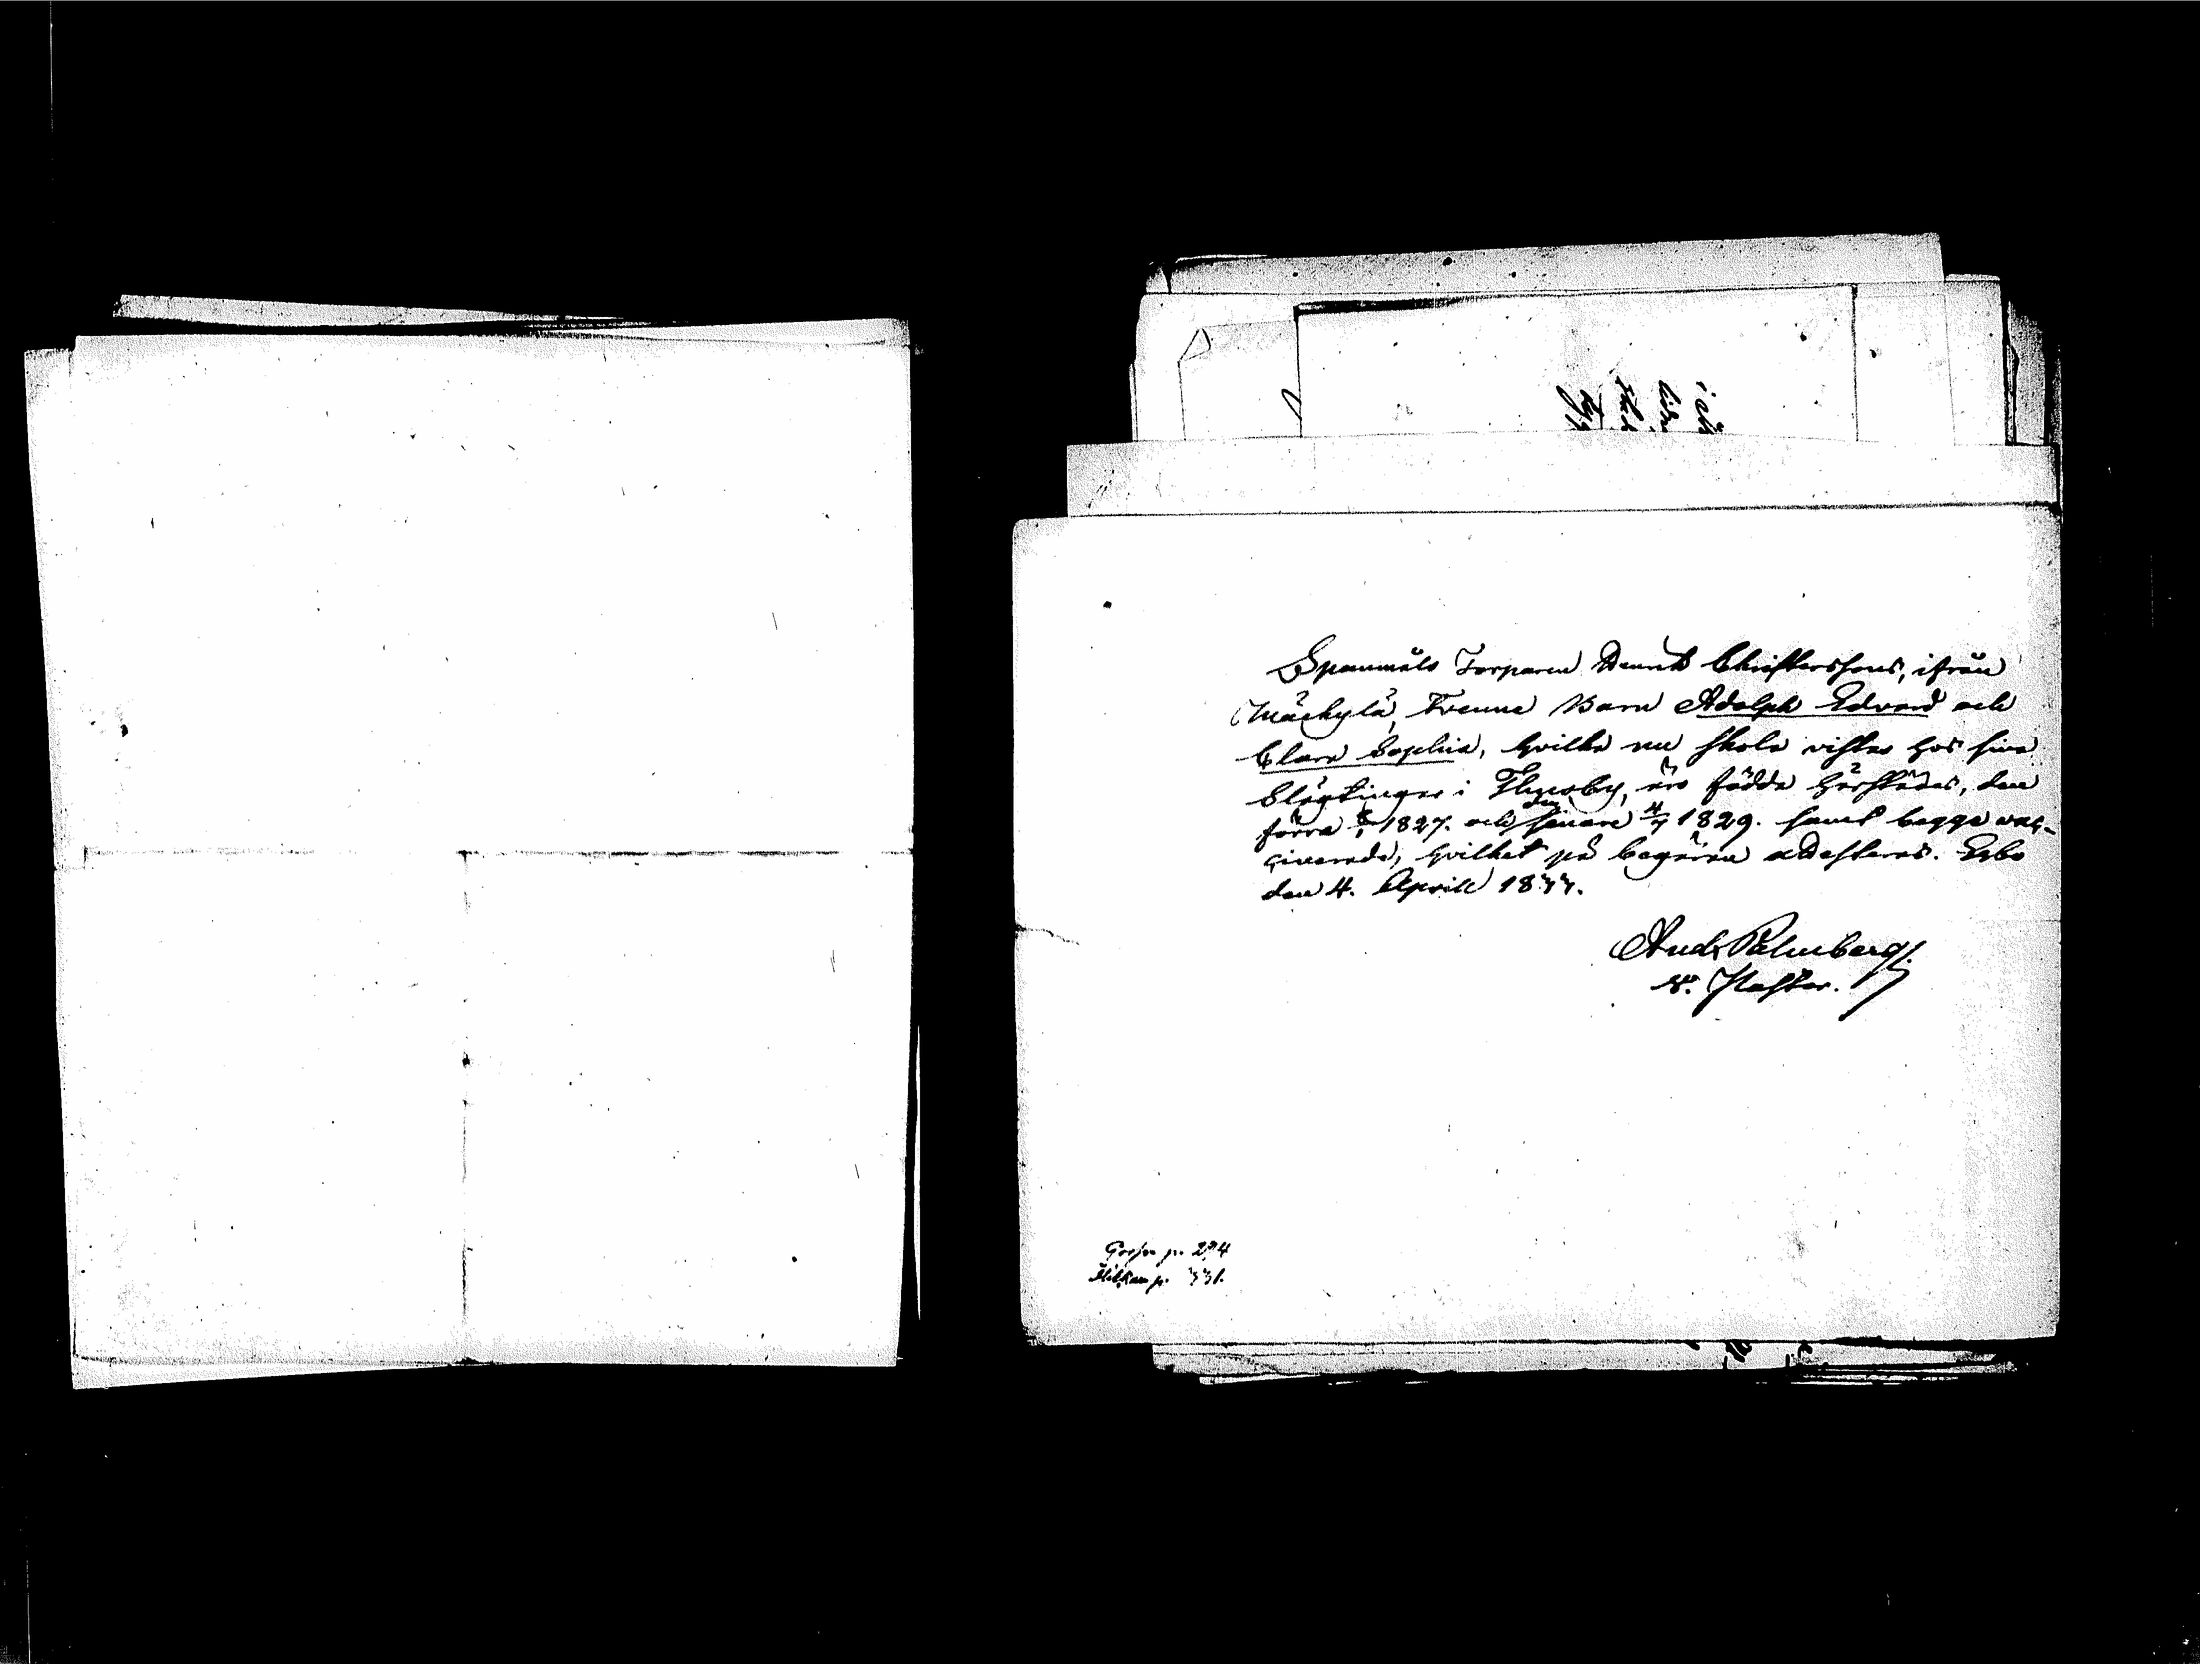 Spanmåls Torparen Henrik Christerssons, ifrån
Mäkylä, Tvenne Barn Adolph Edvard och
Clara Sophia, hvilka nu skola vistas hos sina
Slägtingar i Thusby, äro födda härstädes, den
förra 1827. och den senare 4/7 1829. samt begge vac-
cinerade, hvilket på begäran attesteras. Esbo
den 4. April 1833.
And. Palmberg.
V. Pastor.
p. 294
p. 331.